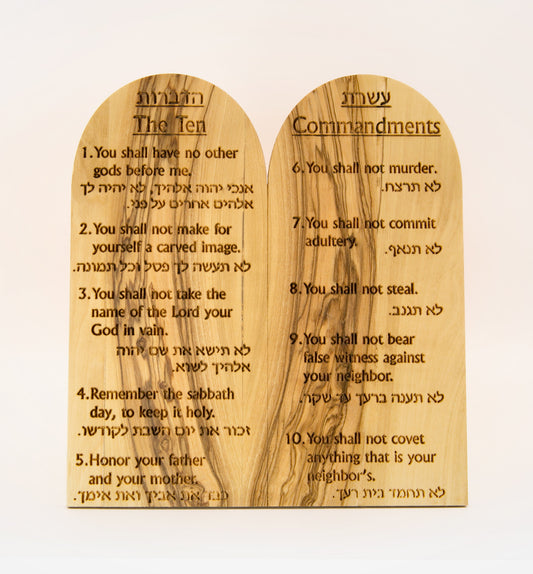 הדברות
The Ten
1. You shall have no other
gods before me.
אנכי יהוה אלהיך, לא יהיה לך
אלהים אחרים על פני.
2. You shall not make for
yourself a carved image.
לא תעשה לך פסל וכל תמונה.
3. You shall not take the
name of the Lord your
God in vain.
לא תישא את שם יהוה
אלהיך לשוא.
4. Remember the sabbath
day, to keep it holy.
זכור את יום השבת לקודשו.
5. Honor your father
and your mother.
כבד את אביך ואת אימך.
עשרת
Commandments
6. You shall not murder.
לא תרצח.
7. You shall not commit
adultery.
לא תנאף.
8. You shall not steal.
לא תגנב.
9. You shall not bear
false witness against
your neighbor.
לא תענה ברעך עד שקר.
10. You shall not covet
anything that is your
neighbor's.
לא תחמד בית רעך.